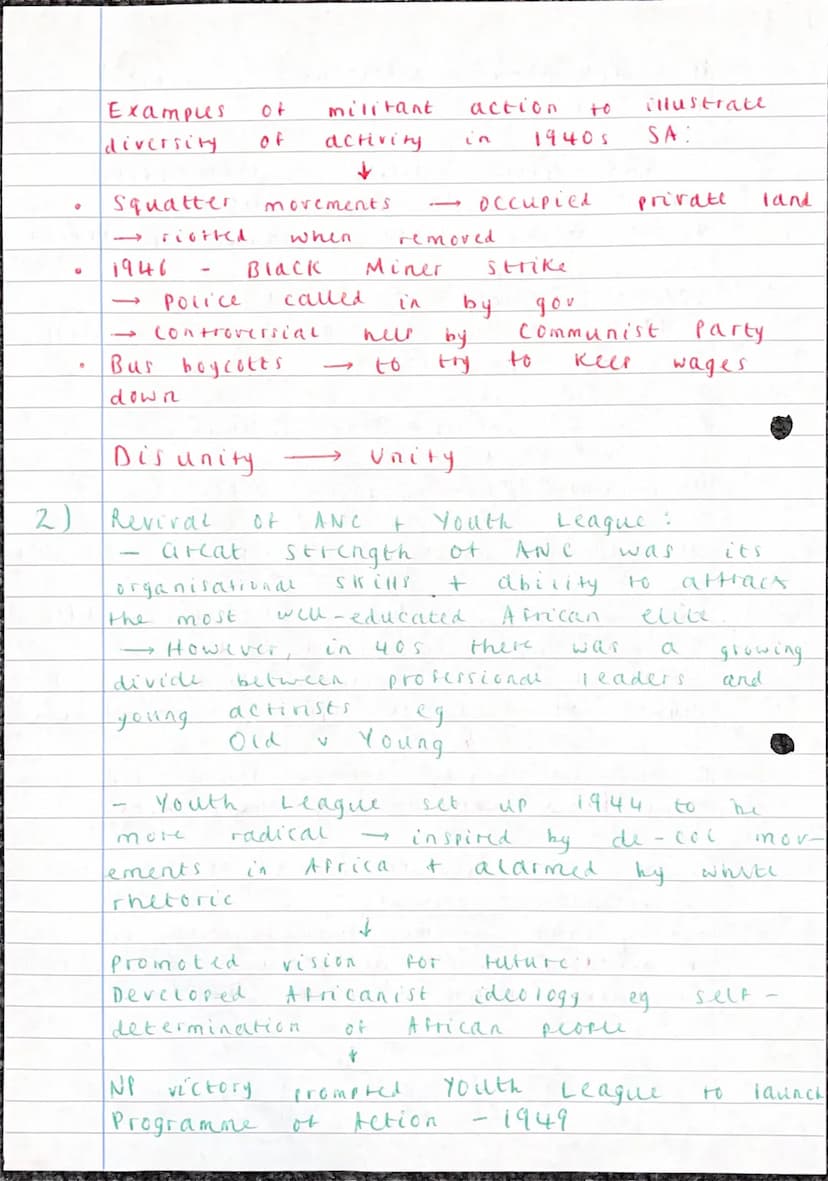 Examples of militant action to illustrate
diversity of activity in 1940s SA:
↓
• Squatter movements → occupied private land
→ rioted when removed
• 1946 - Black Miner Strike
→ Police called in by gov
→ controversial help by Communist Party
• Bus boycotts → to try to keep wages
down
Disunity → Unity
2) Revival of ANC + Youth League:
- Great strength of ANC was its
organisational skills + ability to attract
the most well-educated African elite
→ However, in 40s there was a growing
divide between professional leaders and
young activists eg
Old v Young
- Youth League set up 1944 to be
more radical → inspired by de-col mov-
ements in Africa + alarmed by white
rhetoric
↓
Promoted vision for future.
Developed Africanist ideology eg self-
determination of African people
↓
NP victory prompted Youth League to launch
Programme of Action - 1949